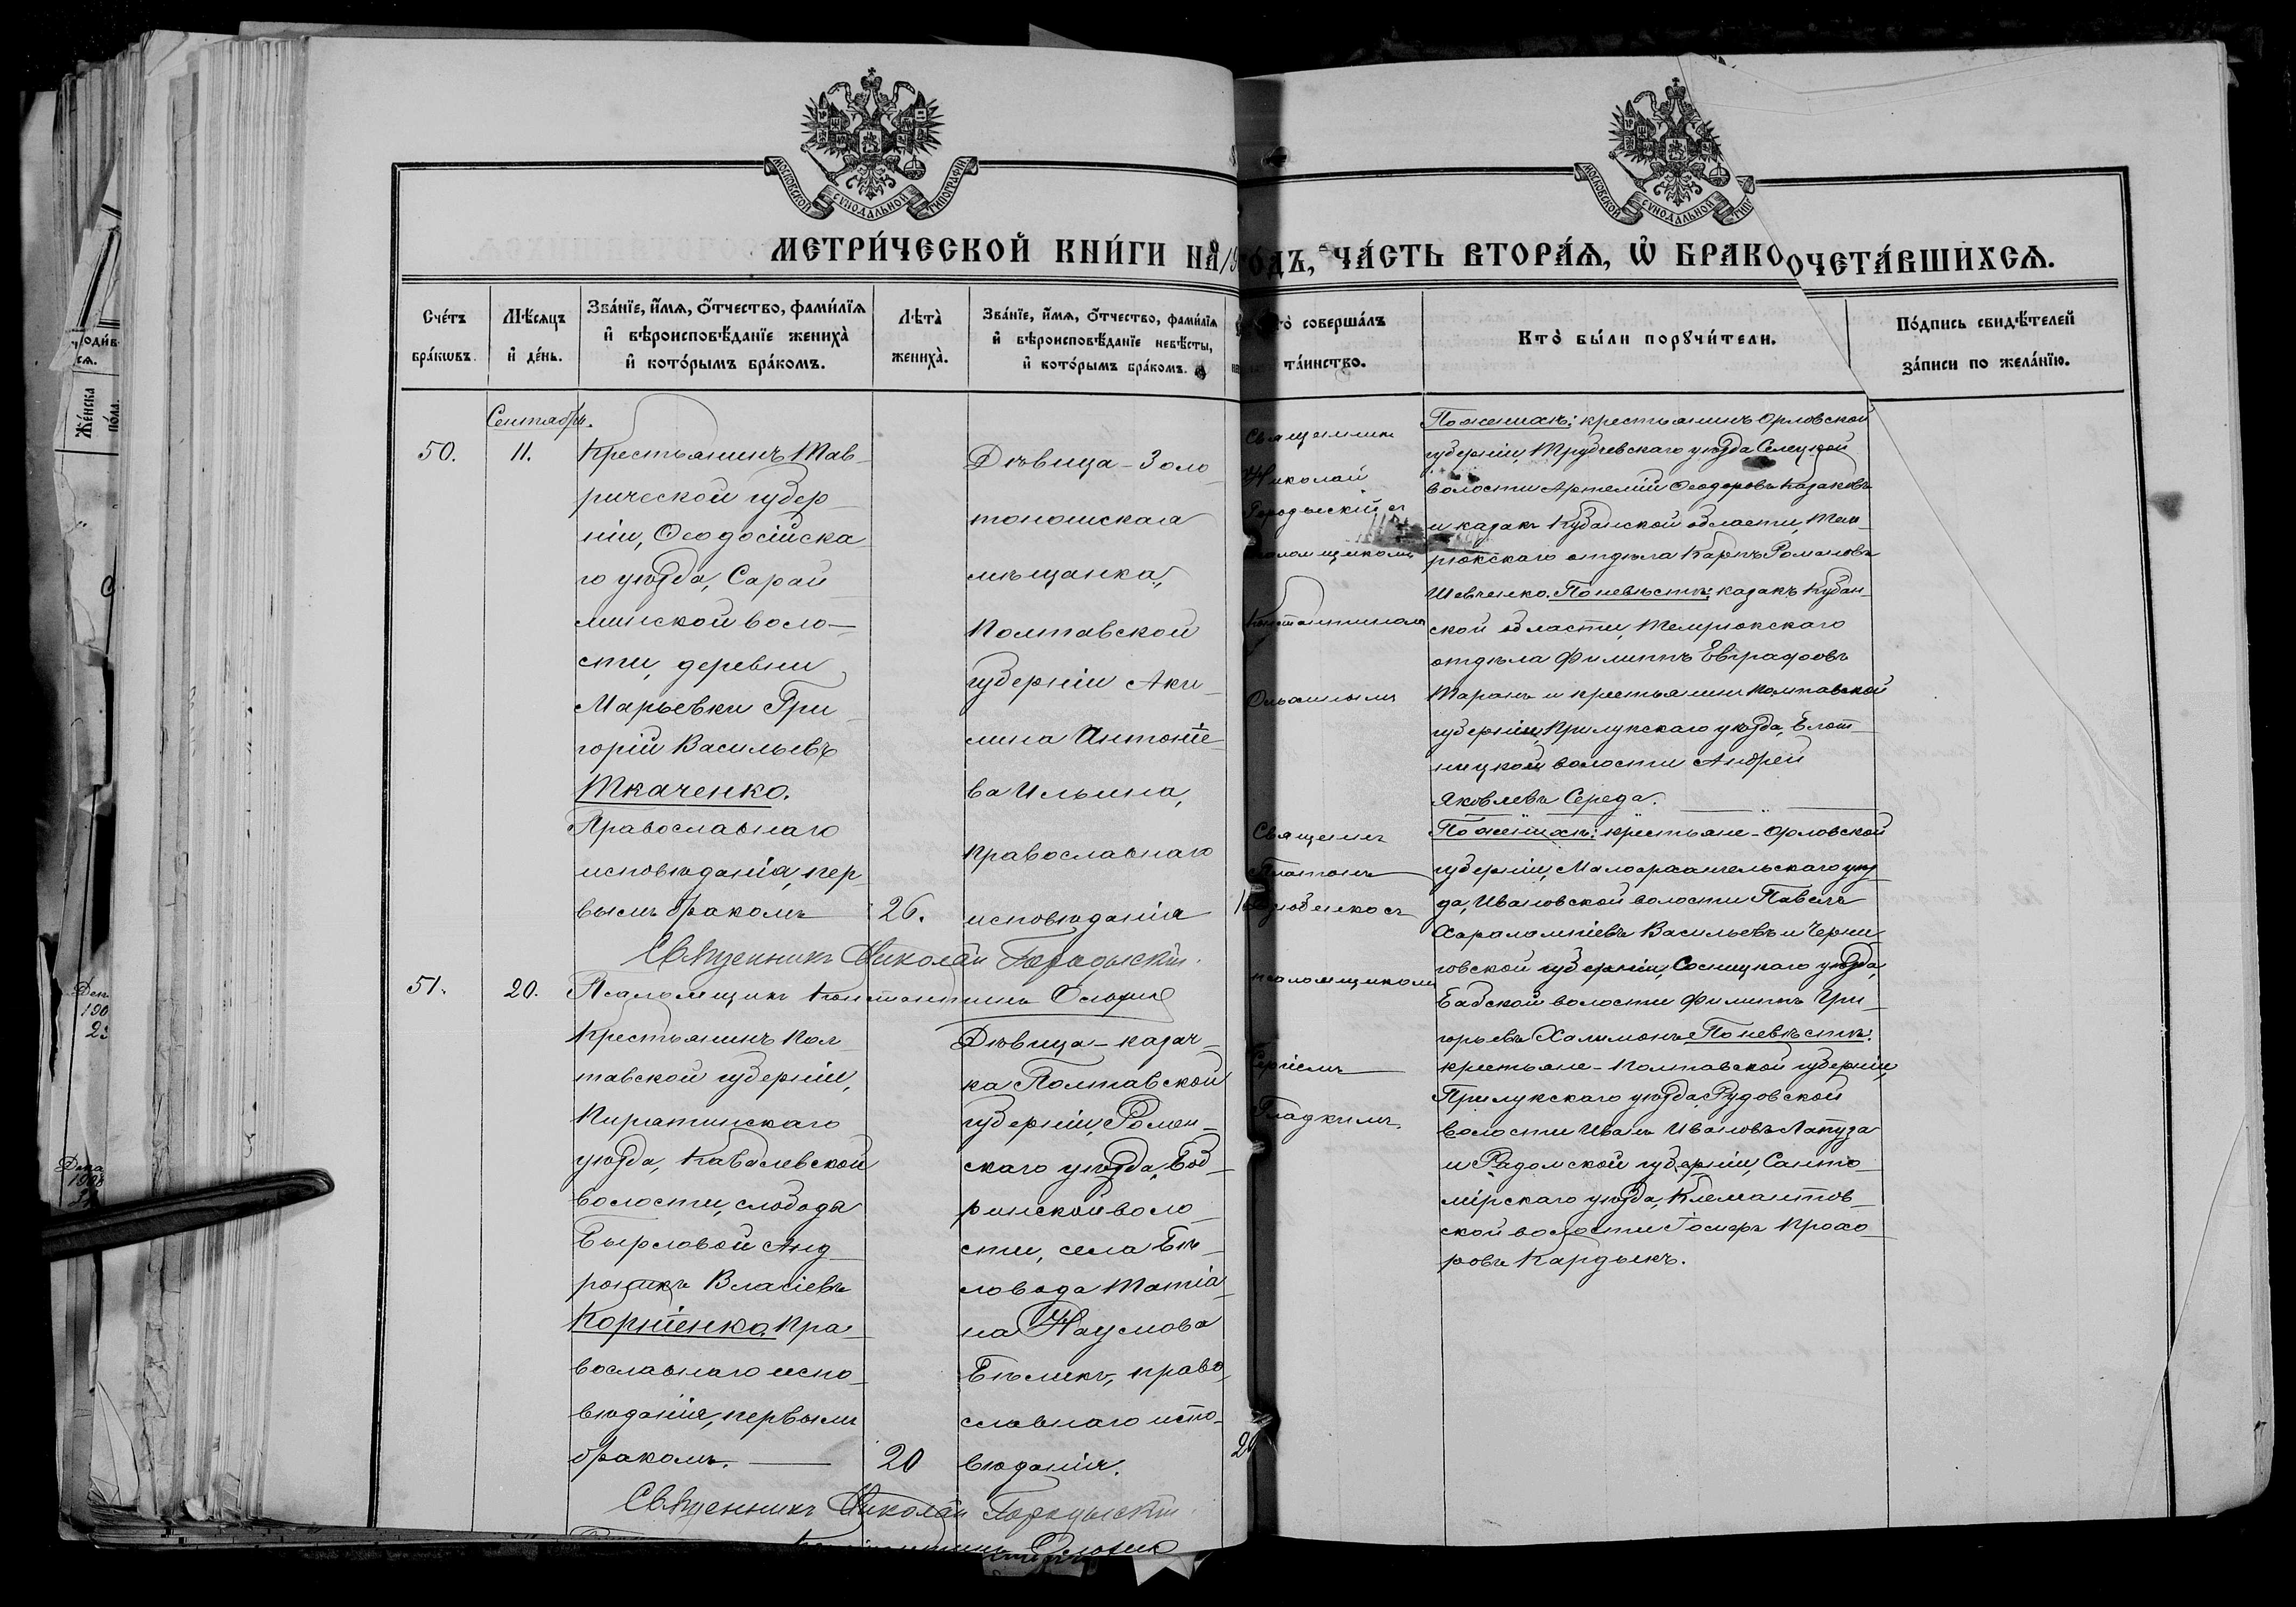 МОСКОВСКОЙ СѴНОДАЛЬНОЙ ТИПОГРАФІИ
МОСКОВСКОЙ СѴНОДАЛЬНОЙ ТИП
МЕТРИ́ЧЕСКОЙ КНИ́ГИ НА
ОДЪ, ЧА́СТЬ ВТОРА́Ѧ, Ѡ҆ БРАКО
ОЧЕТА́ВШИХСѦ.
Сче́тъ бра́кѡвъ.
Мѣ́сяцъ и҆ де́нь.
Зва́нїе, и҆́мѧ, ѻ҆́тчество, фами́лїѧ и҆ вѣроисповѣ́данїе жениха̀ и҆ кото́рымъ бра́комъ.
Лѣта̀ жениха̀.
Зва́нїе, и҆́мѧ, ѻ҆́тчество, фами́лїѧ и҆ вѣроисповѣ́данїе невѣ́сты, и҆ кото́рымъ бра́комъ.
то̀ соверша́лъ та́инство.
Кто̀ бы́ли порꙋчи́тели.
По́дпись свидѣ́телей за́писи по жела́нїю.
Сентябрь.
50.
11.
Крестьянинъ Тав-
рической губер-
ніи, Ѳеодосійска-
го уѣзда, Сарай-
минской воло-
сти, деревни
Марьевки Гри-
горій Васильевъ
Ткаченко.
Православнаго
исповѣданія, пер-
вымъ бракомъ
26.
Дѣвица - Золо-
тоношская
мѣщанка,
Полтавской
губерніи Аки-
лина Антоніе-
ва Ильина,
православнаго
исповѣданія
Священникъ
Николай
Городыскій съ
Константиномъ
По женихѣ: крестьянинъ Орловской
губерніи, Трубчевскаго уѣзда Селецкой
волости Артемій Ѳеодоровъ Казаковъ
и казакъ Кубанской области, Тем-
рюкскаго отдѣла Карпъ Романовъ
Шевченко. По невѣстѣ: казакъ Кубан-
ской области, Темрюкскаго
отдѣла Филиппъ Евграфовъ
Таранъ и крестьянинъ Полтавской
губерніи, Прилукскаго уѣзда,
волости Андрей
Яковлевъ Середа.
Священникъ Николай Городыскій.
Псаломщикъ Константинъ
51.
20.
Крестьянинъ Пол-
тавской губерніи,
Пирятинскаго
уѣзда, Каввлевской
волости, слободы
Бырловой Анд-
роникъ Власіевъ
Корніенко, пра-
вославнаго испо-
вѣданія, первымъ
бракомъ.
20
Дѣвица - казач-
ка Полтавской
губерніи, Ромен-
скаго уѣзда, Боб-
рикской воло-
сти, села Бѣ-
ловода Татіа-
на Наумова
Бѣликъ, право-
славнаго испо-
вѣданія.
Священникъ
Платонъ
псаломщикомъ
Сергіемъ
Гладкимъ.
По женихѣ: крестьяне - Орловской
губерніи, Малоархангельскаго уѣз-
да, Ивановской волости Павелъ
Харалампіевъ Васильевъ и Черни-
говской губерніи, Сосницкаго уѣзда,
Бабской волости Филиппъ Гри-
горьевъ Халимонъ. По невѣстѣ:
крестьяне - Полтавской губерніи,
Прилукскаго уѣзда, Рудовской
волости Иванъ Ивановъ Лапуза
и Радомской губерніи, Сандо-
мірскаго уѣзда, Климантов-
ской волости Іосифъ Прохо-
ровъ Кардыкъ.
Священникъ Николай Городыскій.